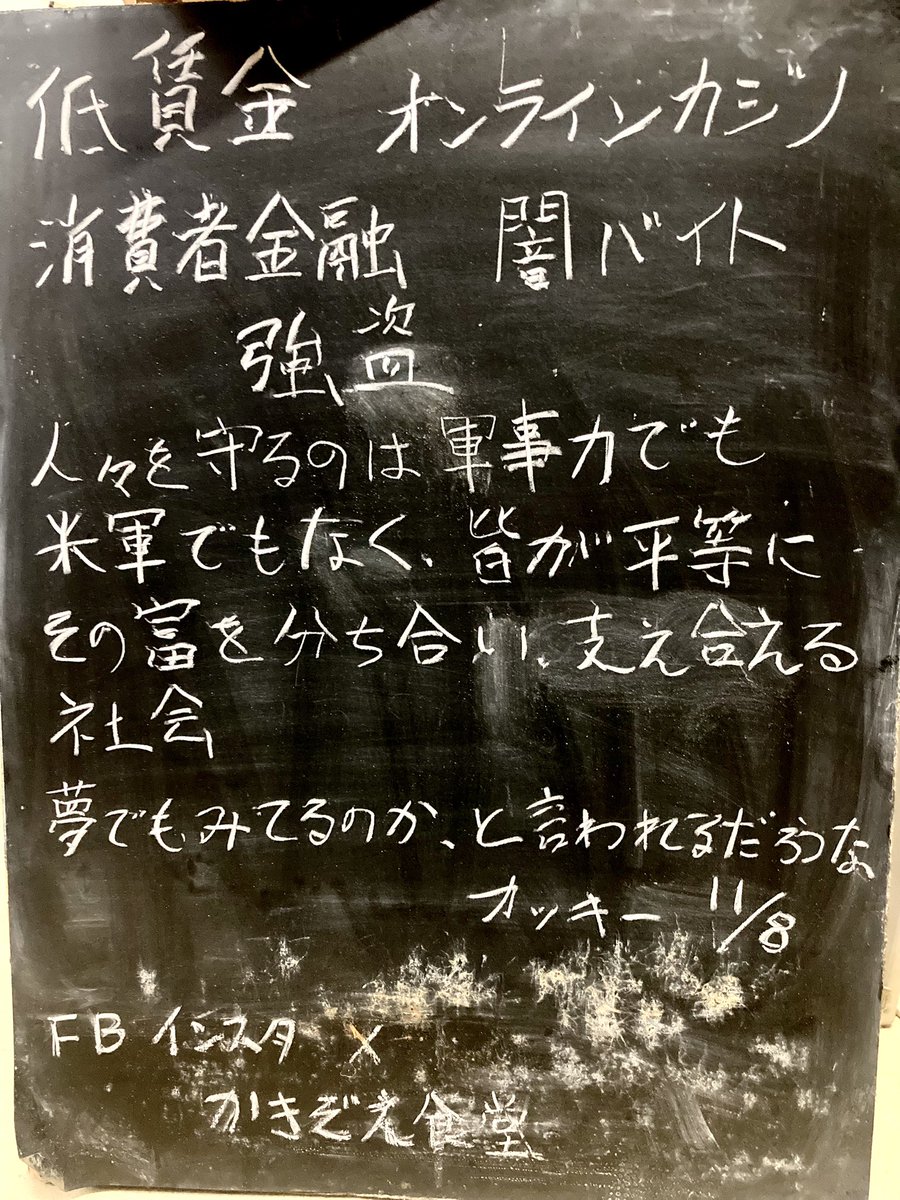 低賃金 オンラインカジノ
消費者金融 闇バイト
強盗
人々を守るのは軍事力でも
米軍でもなく、皆が平等に
その富を分ち合い、支え合える
社会
夢でもみてるのか、と言われるだろうな
カッキー 11/8
FB インスタ X
かきぞえ食堂